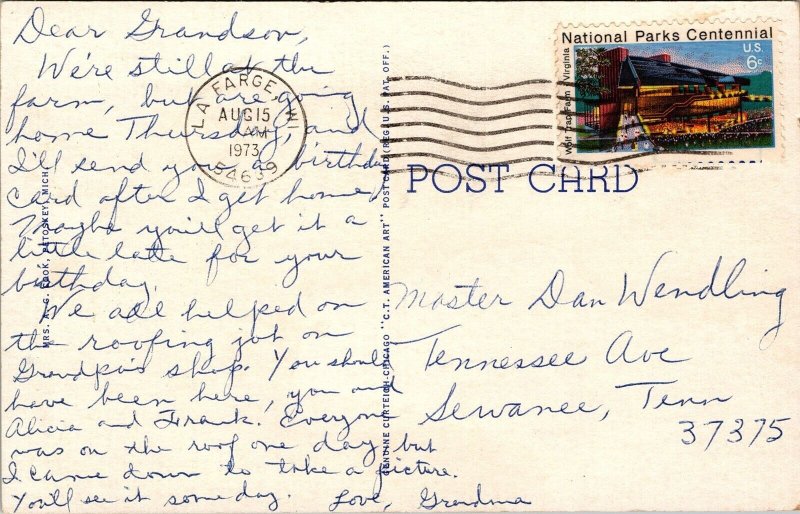 Dear Grandson,
We're still at the
farm, but are going
home Thursday, and
I'll send you a birthday
card after I get home.
Maybe you'll get it a
little late for your
birthday.
We all helped on
the roofing job on
Grandpa's shop. You should
have been here, you and
Alicia and Frank. Everyone
was on the roof one day but
I came down to take a picture.
You'll see it some day. Love, Grandma
LA FARGE, WI
AUG 15
AM
1973
54639
National Parks Centennial
U.S.
6c
Wolf Trap Farm, Virginia
POST CARD
Master Dan Wendling
Tennessee Ave
Sewanee, Tenn
37375
MRS. A. G. COOK, PETOSKEY, MICH.
GENUINE CURTEICH-CHICAGO "C.T. AMERICAN ART" POST CARD (REG. U.S. PAT. OFF.)